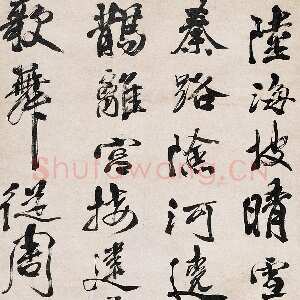 陸海披晴雪
秦路陰河遶
鵲離宮接建
歌舞從周
Shufawang.CN